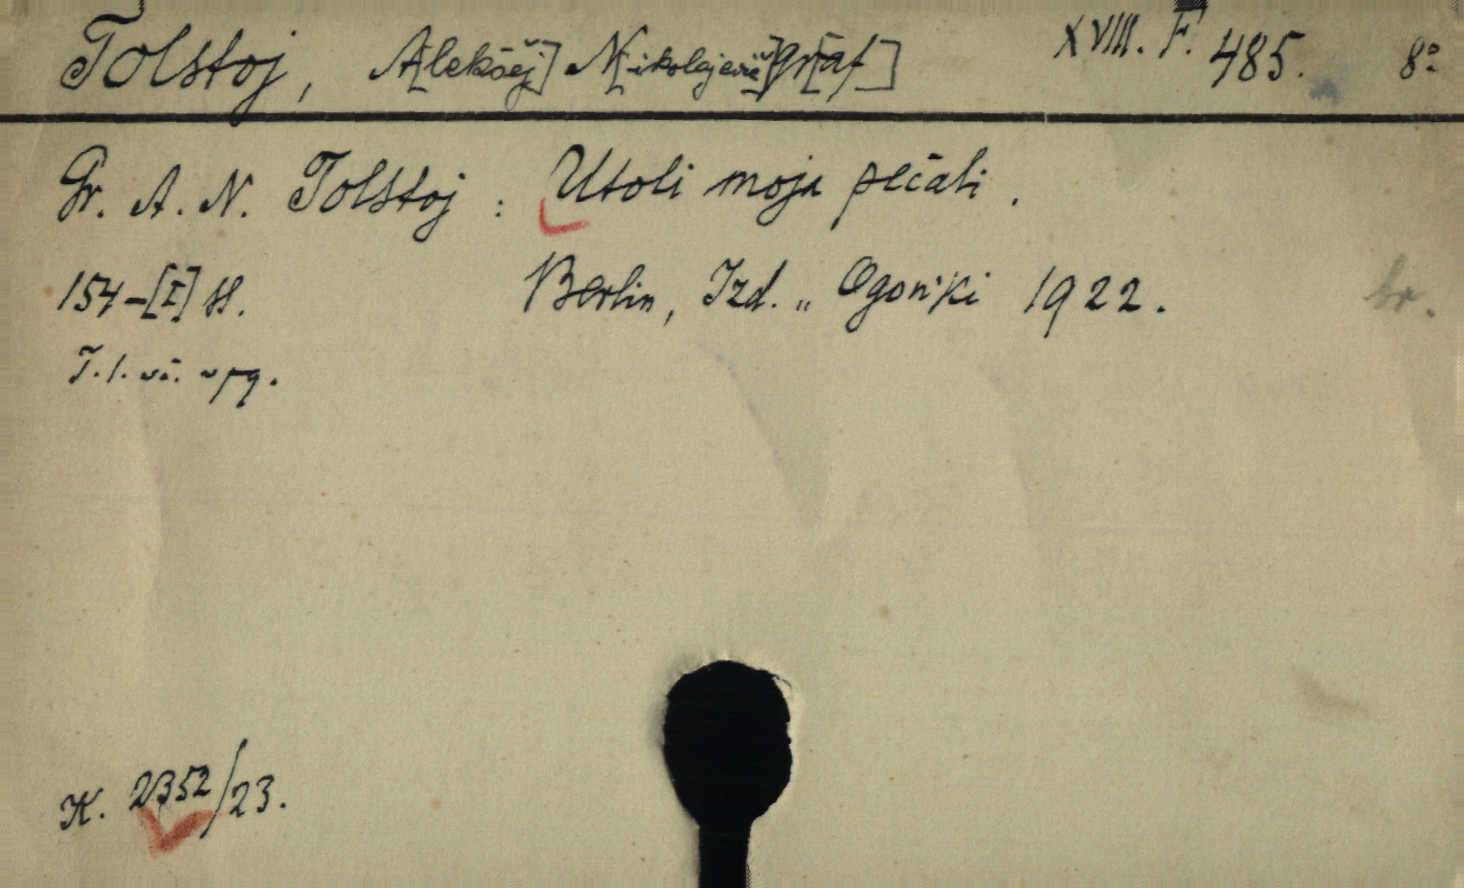 Tolstoj, A[leksěj] N[ikolajevič] Gr[af] XVIII. F. 485. 8°
Gr. A. N. Tolstoj: Utoli moja pečali.
154-[I] S. Berlin, Izd. „Ogon'ki 1922. br.
T. l. vč. v pg.
K. 2352/23.